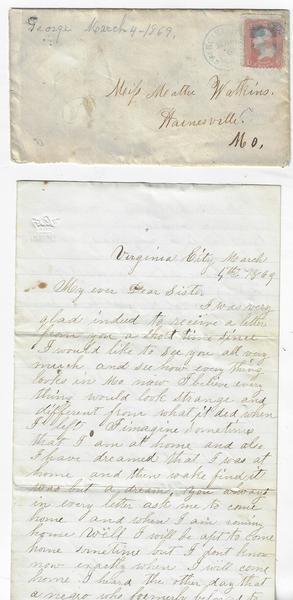 George March 4-1869.
Miss Mattie Watkins.
Hainesville.
Mo.
Virginia City March
4th 1869
My ever Dear Sister
I was very
glad indeed to receive a letter
from you a short time since
I would like to see you all very
much and see how every thing
looks in Mo now I believe every
thing would look strange and
different from what it did when
I left. I imagine sometimes
that I am at home and also
I have dreamed that I was at
home and then wake find it
was but a dream, you always
in every letter ask me to come
home and when I am coming
home Well I will be apt to come
home sometime but I dont know
now exactly when I will come
home I heard the other day that
a negro who formerly belonged to